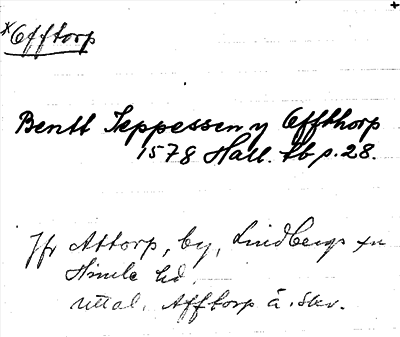 *Efftorp
Bentt Jeppessen y Effthorp
1578 Hall. tb p. 28.
Jfr Attorp, by, Lindbergs sn
Himle hd
uttal. Afftorp ä. skr.